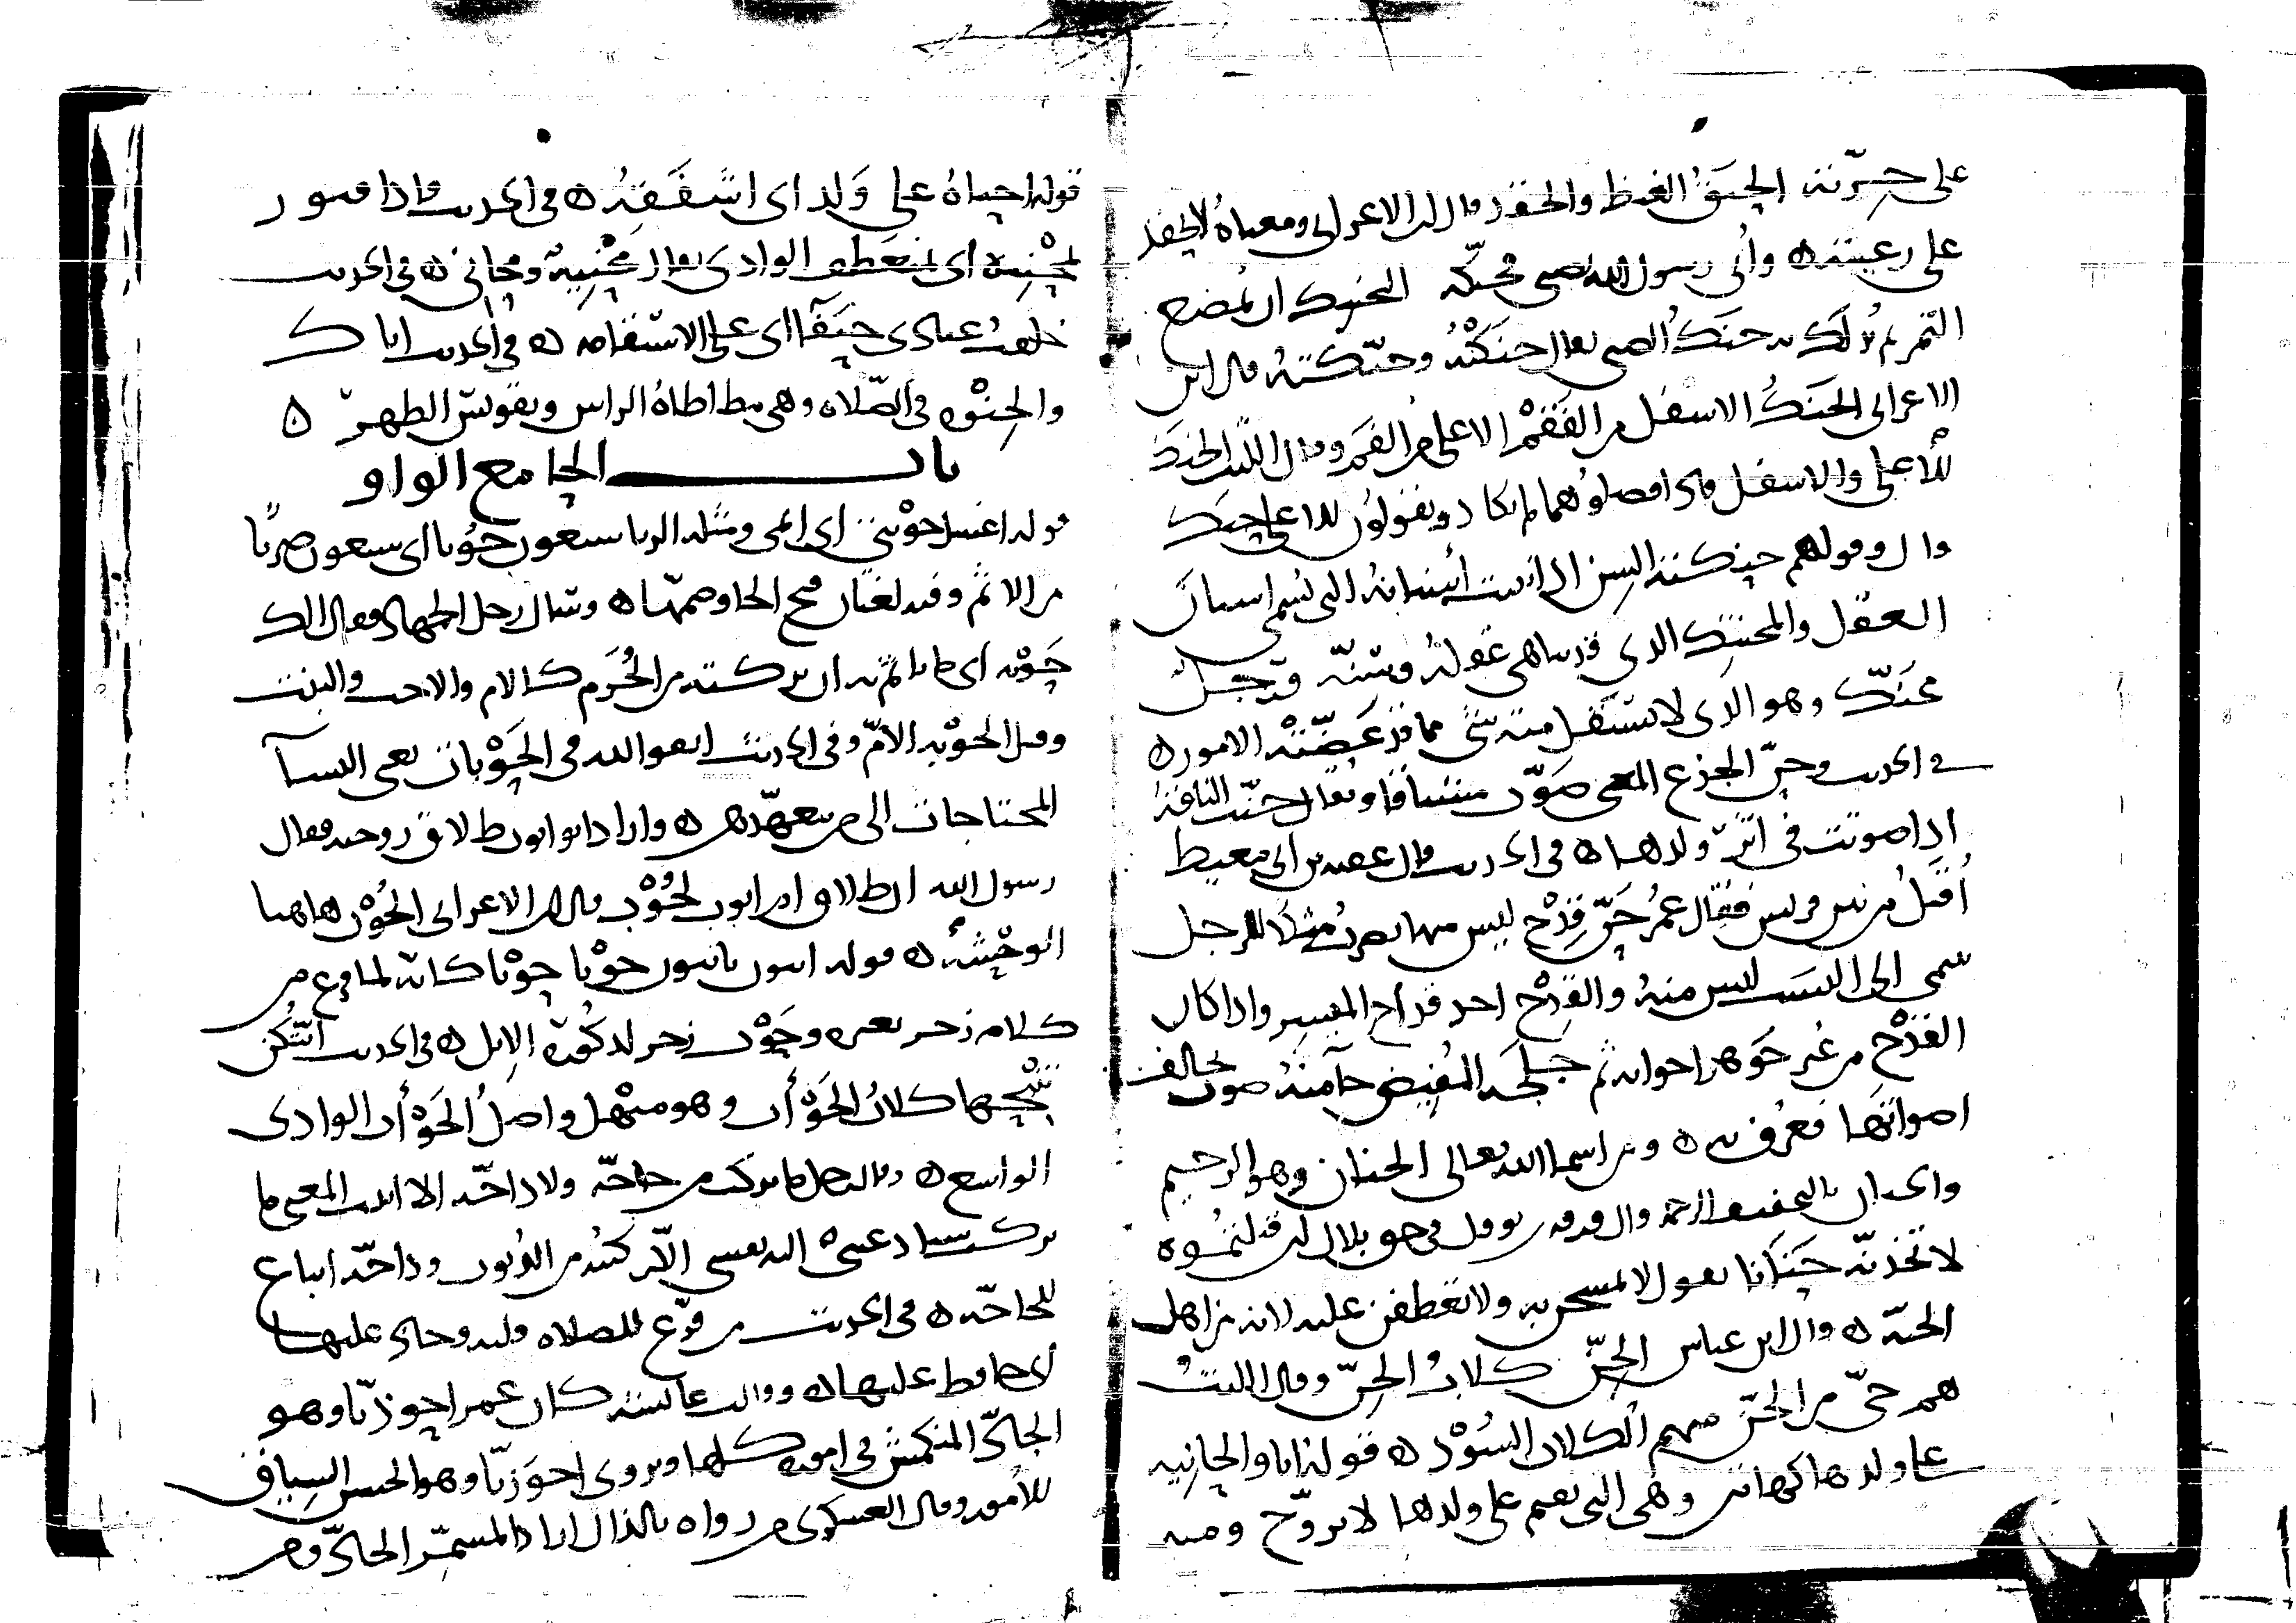 على جرّته الحنق الغيظ والحقد قال ابن الاعرابي ومعناه لا يحقد
على رعيته ه وأُتي رسول الله بصبي فحنّكه التحنيك ان تمضغ
التمر ثم تدلك به حنك الصبي يقال حنكته وحنّكته قال ابن
الاعرابي الحنك الاسفل من الفقم الاعلى من الفم وقال الليث الحنك
للأعلى والاسفل فاذا فصلوهما لم يكادوا يقولون للاعلى حنك
قال وقولهم حنكته السن اذا نبتت أسنانه التي تسمى اسنان
العقل والمحنك الذي قد تناهى عقوله وسنّه قد جل
محنّك وهو الذي لا يستقل منه شي مما قد عضّته الامور ه
في الحديث وحنّ الجذع المعنى صوّت مشتاقا ويقال حنّت الناقة
اذا صوتت في اثر ولدها ه في الحديث قال عقبة بن ابي معيط
أُقتل من بين قريش فقال عمر حنّ قِدْح ليس منها يضرب مثلا للرجل
ينتمي الى النسب ليس منه والقدح احد قداح الميسر واذا كان
القدح من غير جوهر اخواته ثم جلجله المفيض جا منه صوت يخالف
اصواتها فعرف به ه ومن اسما الله تعالى الحنان وهو الرحيم
والحنان بالتخفيف الرحمة قال ورقة بن نوفل في حق بلال لئن قتلتموه
لاتخذنّه حنانا يقول لاتمسحن به ولاتعطفن عليه لانه من اهل
الجنة ه قال ابن عباس الحنّ كلاب الجنّ وقال الليث
هم حيّ من الجن منهم الكلاب السود ه قوله انا والحانية
على ولدها كهاتين وهي التي تقيم على ولدها لا تزوّج ومنه
قوله احناه على ولد اي اشفقه ه في الحديث فاذا قبور
بمحنية اي بمنعطف الوادي يقال محنية ومحاني ه في الحديث
خلقت عبادي حنفا اي على الاستقامة ه في الحديث اياك
والحنوة في الصلاة وهي مطاطاة الراس وتقويس الظهر ه
باب الحا مع الواو
قوله اغسل حوبتي اي اثمي ومثله الربا سبعون حوبا اي سبعون ضربا
من الاثم وفيه لغتان فتح الحا وضمّها ه وسال رجل الجهاد فقال الك
حوبة اي ما ياثم به ان تركته من الحُرَم كالام والاخت والبنت
وقيل الحوبة الامّ وفي الحديث اتقوا الله في الحوبات يعني النسا
المحتاجات الى من يتعهّدهن ه واراد ابو ايوب طلاق زوجه فقال
رسول الله ان طلاق ام ايوب لحُوب قال ابن الاعرابي الحُوب هاهنا
الوحشة ه قوله ايبون تايبون حوبا حوبا كانه لما فرغ من
كلامه زجر بعيره وحَوْب زجر لذكورة الإبل ه في الحديث ايتكن
تنبحها كلاب الحوأب وهو منهل واصل الحوأب الوادي
الواسع ه وقال رجل ما تركت من حاجّه ولا داجّه الا اتيت المعنى ما
تركت شيا دعتني اليه نفسي الّا ركبته من الذنوب وداجّه اتباع
للحاجّه ه في الحديث من فرّغ للصلاة قلبه وحاذ عليها
اي حافظ عليها ه وقالت عايشة كان عمر احوذيّا وهو
الجادّ المنكمش في اموره كلها ويروى احوزيّا وهو الحسن السياق
للأمور وقال العسكري من رواه بالذال اراد المشمّر الجادّ ومن